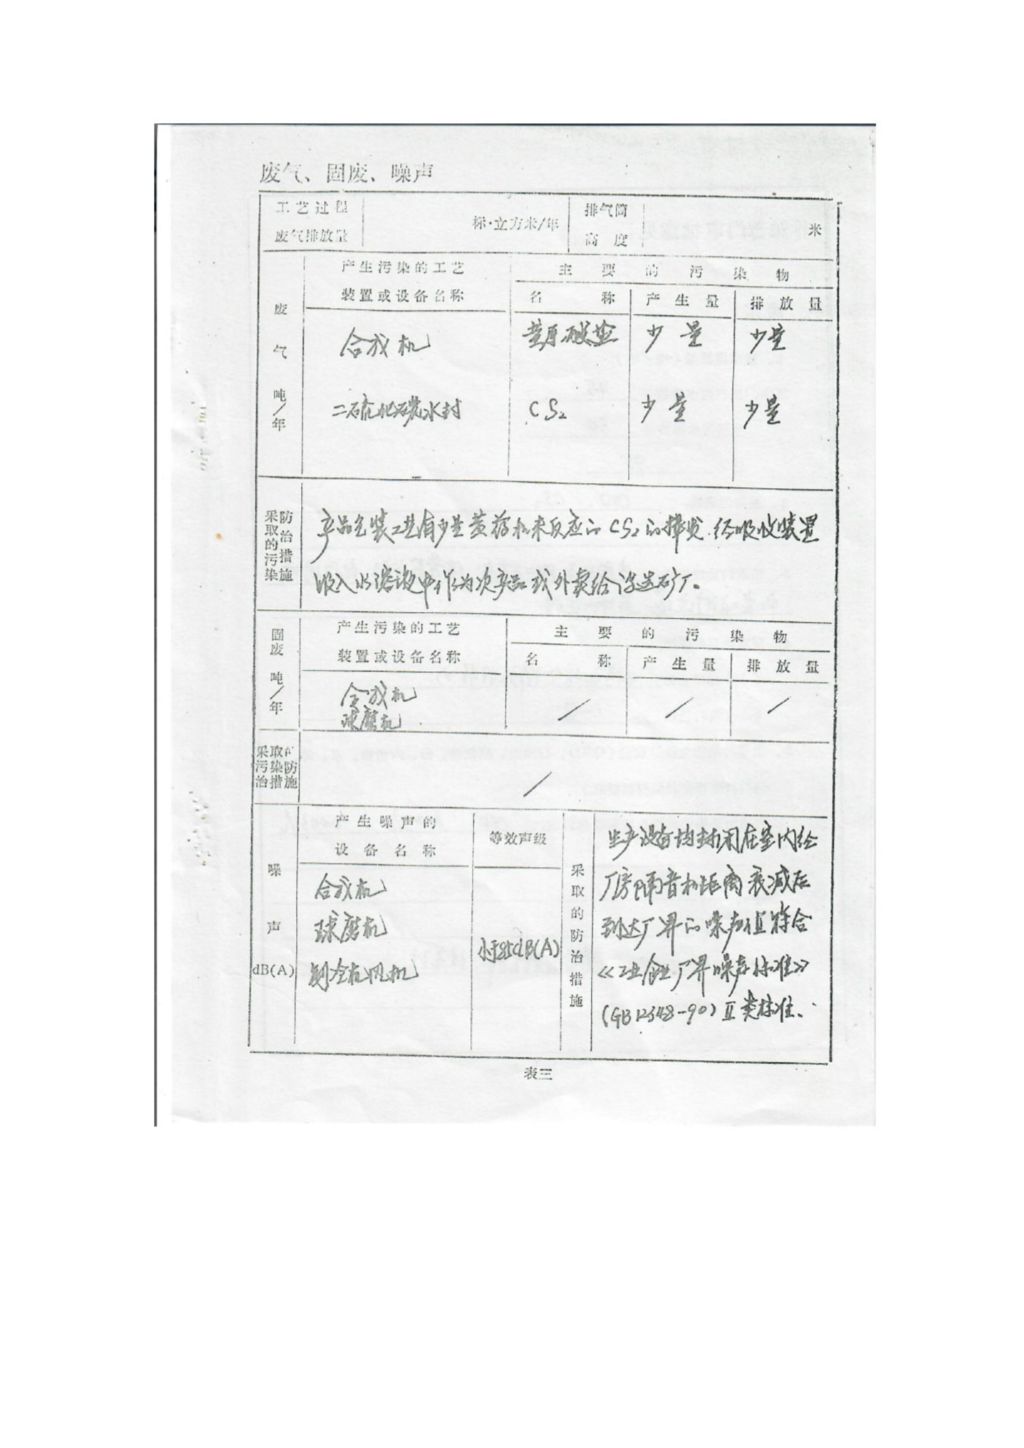 废气、固废、噪声
工艺过程
废气排放量
标·立方米/年
排气筒
高 度
米
废气 吨/年
产生污染的工艺
装置或设备名称
主要的污染物
名 称
产生量
排放量
合成机
少量
少量
二硫化碳水封
CS₂
少量
少量
采取的污染防治措施
产品包装工艺有少量黄药和未反应的CS₂的挥发.经吸收装置
吸入水溶液中作为次产品或外卖给选矿厂。
固废 吨/年
产生污染的工艺
装置或设备名称
主要的污染物
名 称
产生量
排放量
合成机
球磨机
/
/
/
采取的污染防治措施
/
噪声 dB(A)
产生噪声的
设备名称
等效声级
合成机
球磨机
制冷机风机
小于85dB(A)
采取的防治措施
生产设备均封闭在室内经
厂房隔音和距离衰减后
到达厂界的噪声值符合
《工业企业厂界噪声标准》
(GB12348-90)Ⅱ类标准.
表三